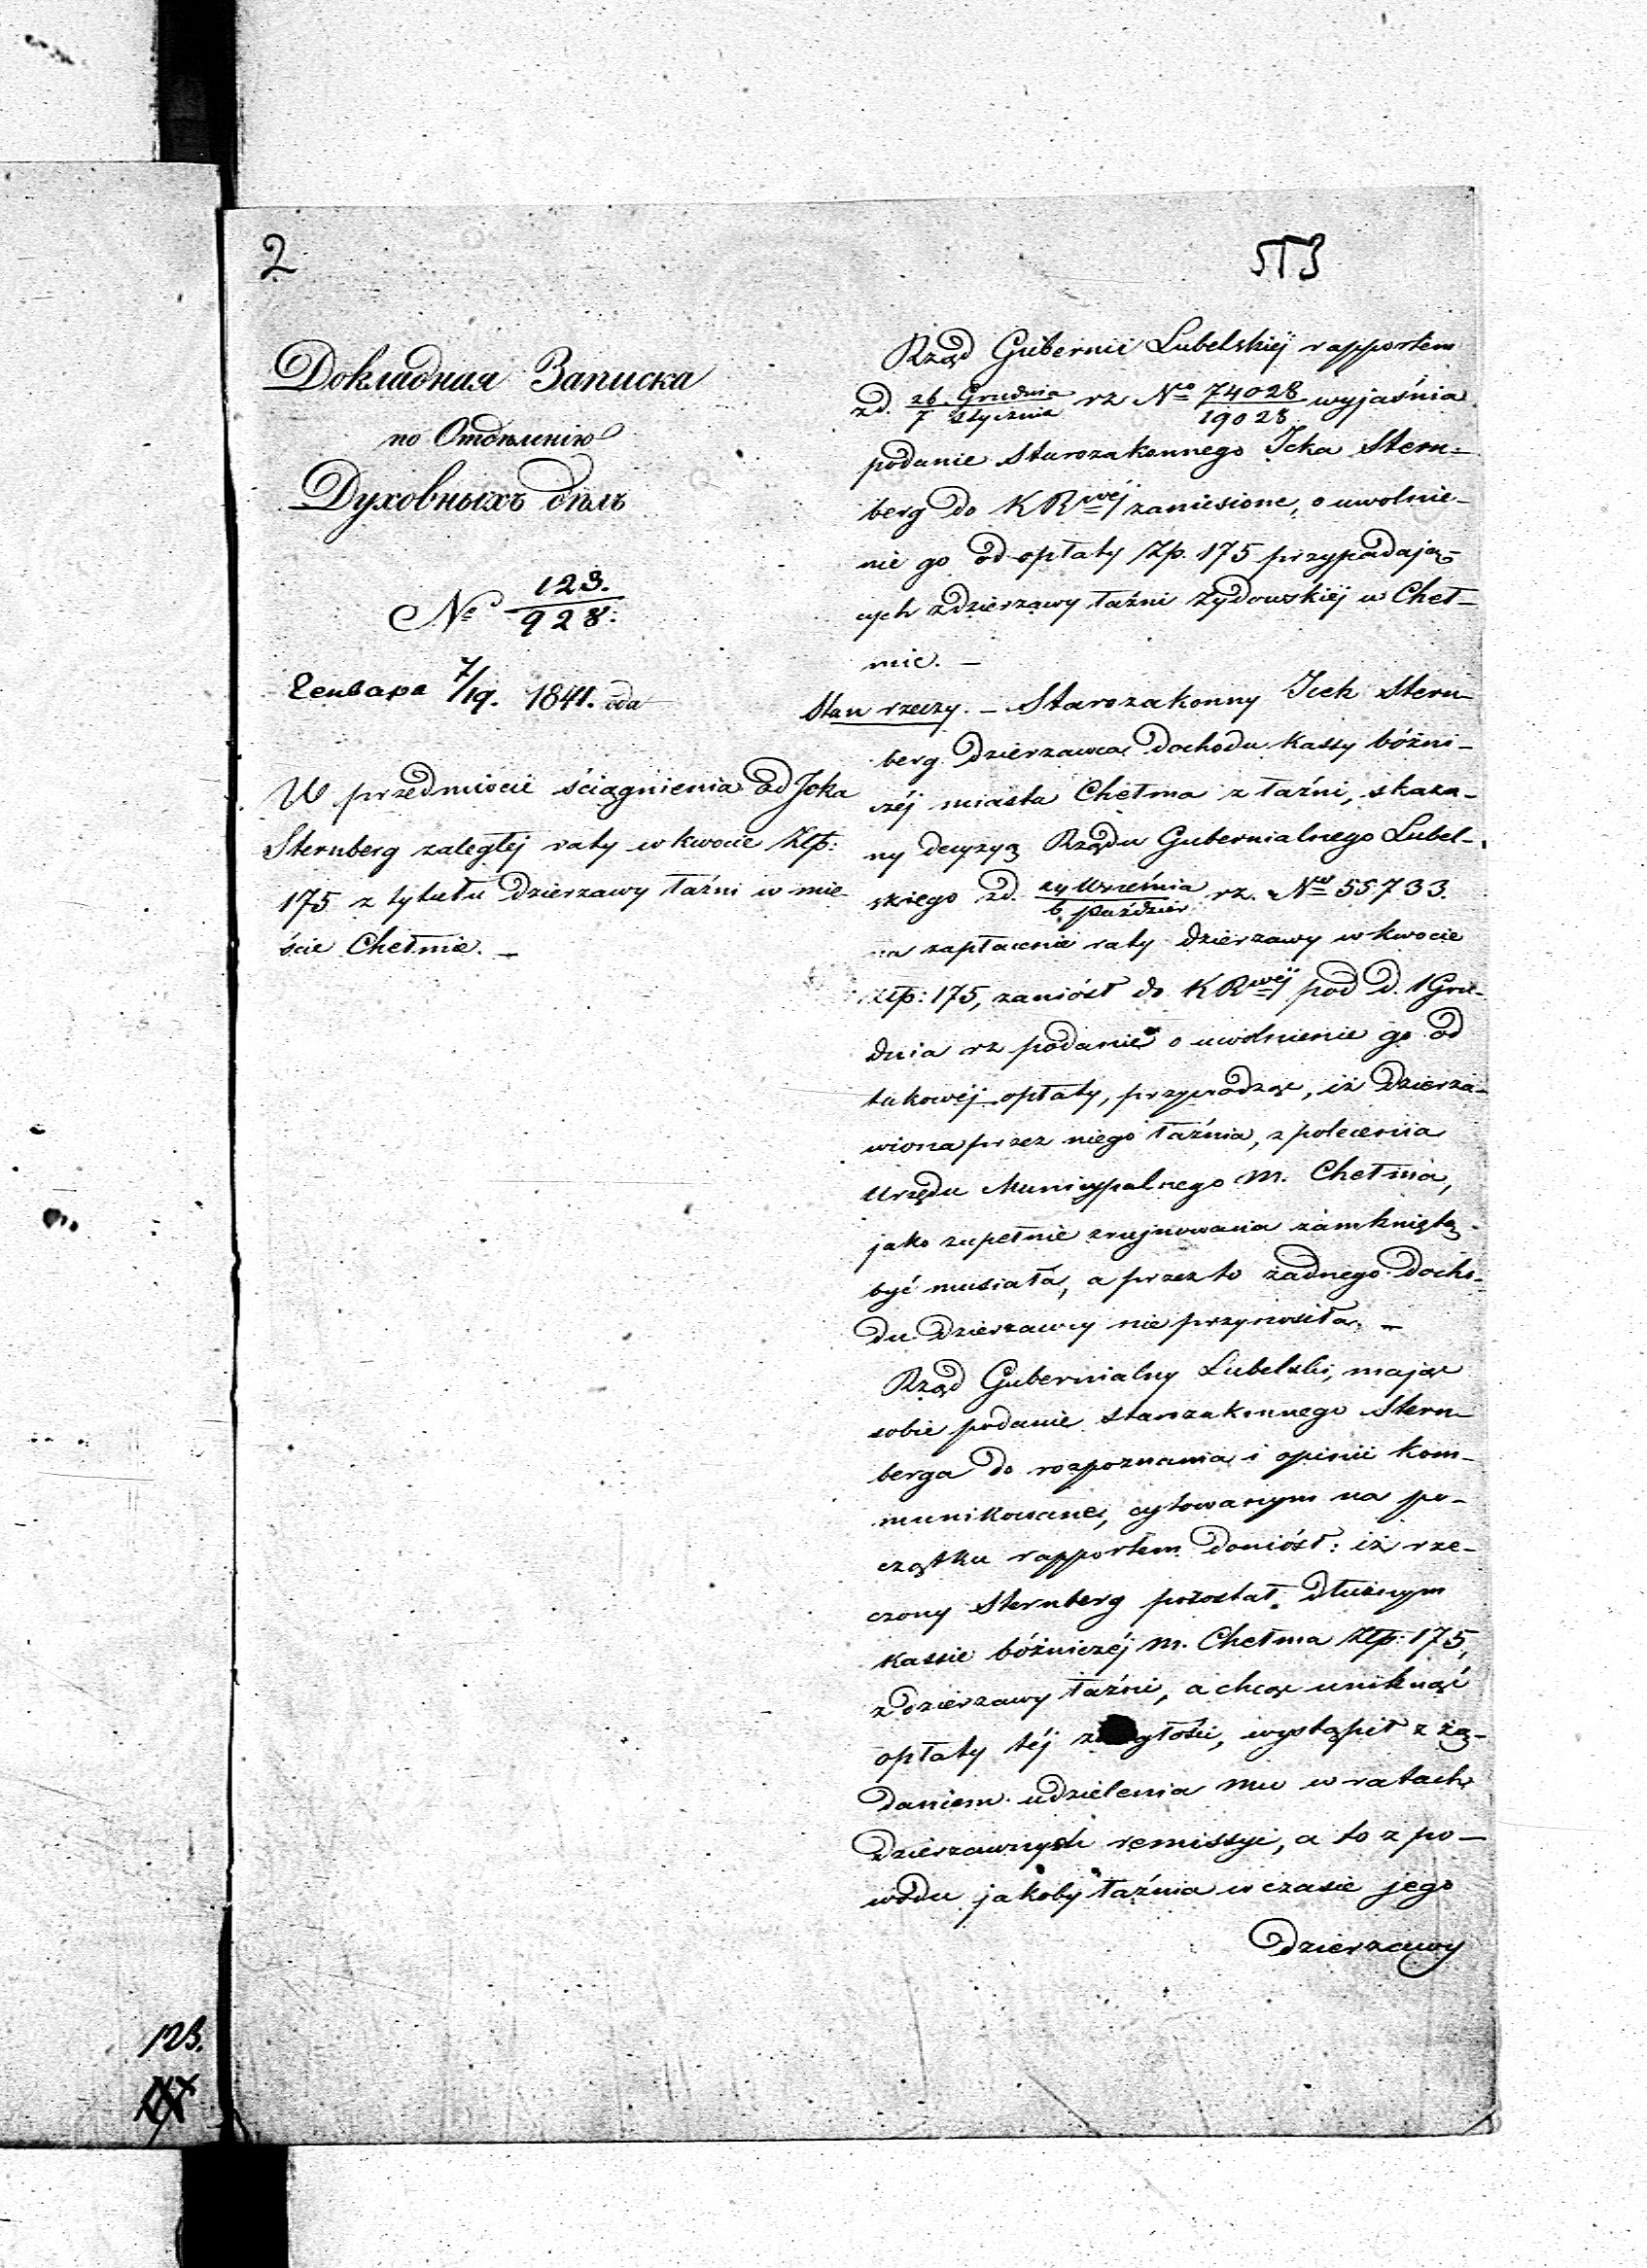 2
Докладная Записка
по Отдѣленію
Духовныхъ дѣлъ
№ 123./928.
Генваря 7/19. 1841. ода
W przedmiocie ściągnienia od Icka
Sternberg zaległej raty w kwocie Złp:
175 z tytułu dzierzawy łaźni w mie
ście Chełmie. —
Rząd Gubernii Lubelskiéj rapportem
z d. 26 Grudnia/7 Stycznia rz No 74028/19028 wyjaśnia
podanie Starozakonnego Icka Stern=
berg do KRwéj zaniesione, o uwolnie-
nie go od opłaty Zp. 175 przypadają-
cych z dzierzawy łaźni żydowskiéj w Cheł-
mie. —
Stan rzeczy. — Starozakonny Icek Stern-
berg dzierzawca dochodu kassy bóżni-
czéj miasta Chełma z łaźni, skaza-
ny decyzyą Rządu Gubernialnego Lubel-
skiego z d. Września/6 paździer rz. No 55733.
na zapłacenie raty dzierzawy w kwocie
złp: 175, zaniósł do KRwéj pod d. 1 Gru-
dnia rz podanie o uwolnienie go od
takowéj opłaty, przywodząc, iż dzierza-
wiona przez niego łaźnia, z polecenia
Urzędu Municypalnego m. Chełma,
jako zupełnie zrujnowana zamkniętą
być musiała, a przez to żadnego docho-
du dzierzawcy nie przynosiła. —
Rząd Gubernialny Lubelski, mając
sobie podanie starozakonnego Stern-
berga do rozpoznania i opinii kom-
munikowane, cytowanym na po-
czątku rapportem doniósł: iż rze-
czony Sternberg pozostał dłużnym
kassie bóżniczéj m. Chełma Złp: 175,
z dzierzawy łaźni, a chcąc uniknąć
opłaty téj wystąpił z żą-
daniem udzielenia mu w ratach
dzierzawnych remissyi, a to z po-
wodu jakoby łaźnia w czasie jego
dzierzawy
123.